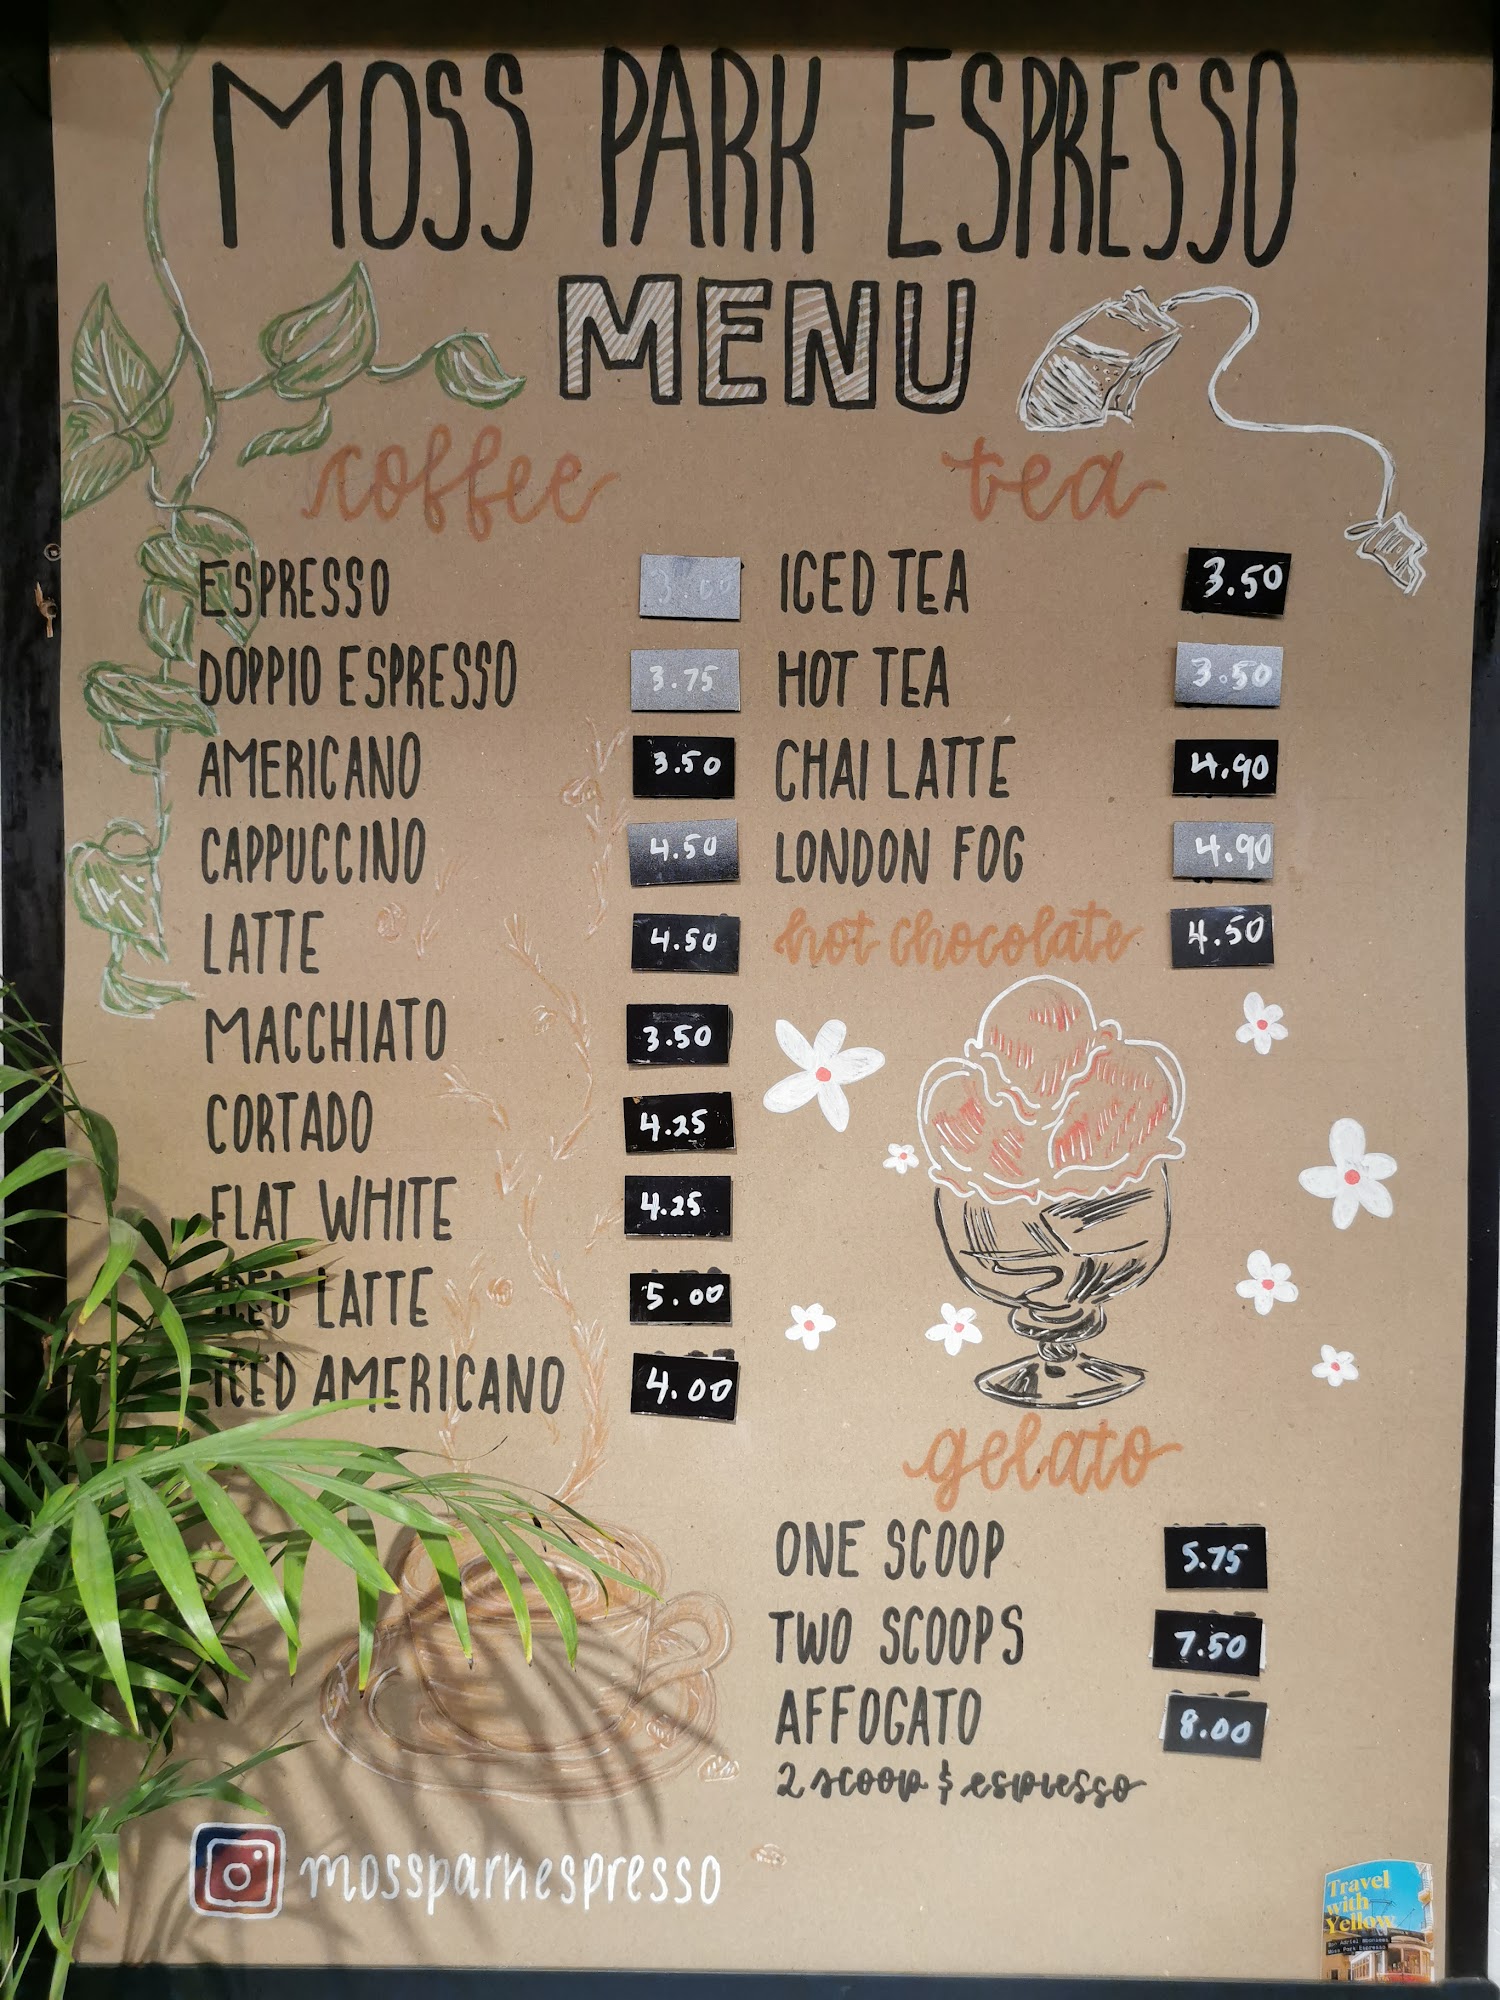 MOSS PARK ESPRESSO
MENU
coffee
ESPRESSO 3.00
DOPPIO ESPRESSO 3.75
AMERICANO 3.50
CAPPUCCINO 4.50
LATTE 4.50
MACCHIATO 3.50
CORTADO 4.25
FLAT WHITE 4.25
ICED LATTE 5.00
ICED AMERICANO 4.00
tea
ICED TEA 3.50
HOT TEA 3.50
CHAI LATTE 4.90
LONDON FOG 4.90
hot chocolate 4.50
gelato
ONE SCOOP 5.75
TWO SCOOPS 7.50
AFFOGATO 8.00
2 scoop & espresso
mossparkespresso
Travel
with
Yellow
Moss Park Espresso